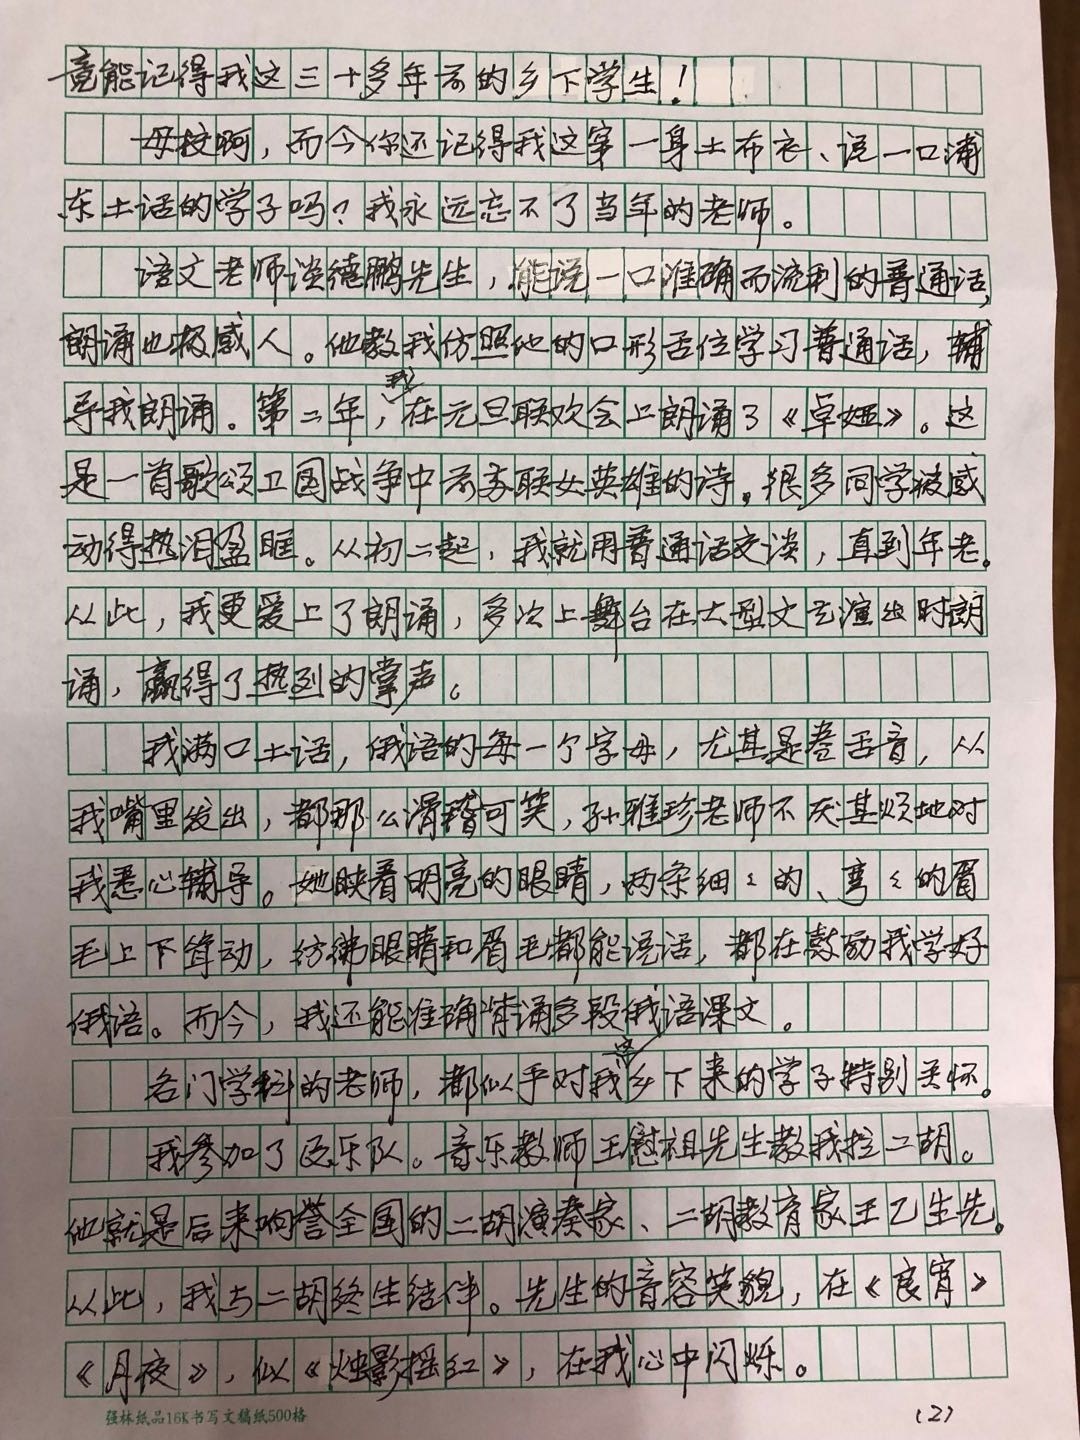 竟能记得我这三十多年前的乡下学生！
母校啊，而今你还记得我这穿一身土布衣、说一口浦
东土话的学子吗？我永远忘不了当年的老师。
语文老师谈德鹏先生，能说一口准确而流利的普通话，
朗诵也极感人。他教我仿照他的口形舌位学习普通话，辅
导我朗诵。第二年，我在元旦联欢会上朗诵了《卓娅》。这
是一首歌颂卫国战争中前苏联女英雄的诗。很多同学被感
动得热泪盈眶。从初二起，我就用普通话交谈，直到年老。
从此，我更爱上了朗诵，多次上舞台在大型文艺演出时朗
诵，赢得了热烈的掌声。
我满口土话，俄语的每一个字母，尤其是卷舌音，从
我嘴里发出，都那么滑稽可笑，孙雅珍老师不厌其烦地对
我悉心辅导。她眏着明亮的眼睛，两条细〻的、弯〻的眉
毛上下耸动，仿彿眼睛和眉毛都能说话，都在鼓励我学好
俄语。而今，我还能准确背诵多段俄语课文。
各门学科的老师，都似乎对我这乡下来的学子特别关怀。
我参加了民乐队。音乐教师王慰祖先生教我拉二胡。
他就是后来响誉全国的二胡演奏家、二胡教育家王乙生先。
从此，我与二胡终生结伴。先生的音容笑貌，在《良宵》
《月夜》，似《烛影摇红》，在我心中闪烁。
强林纸品16K书写文稿纸500格
(2)